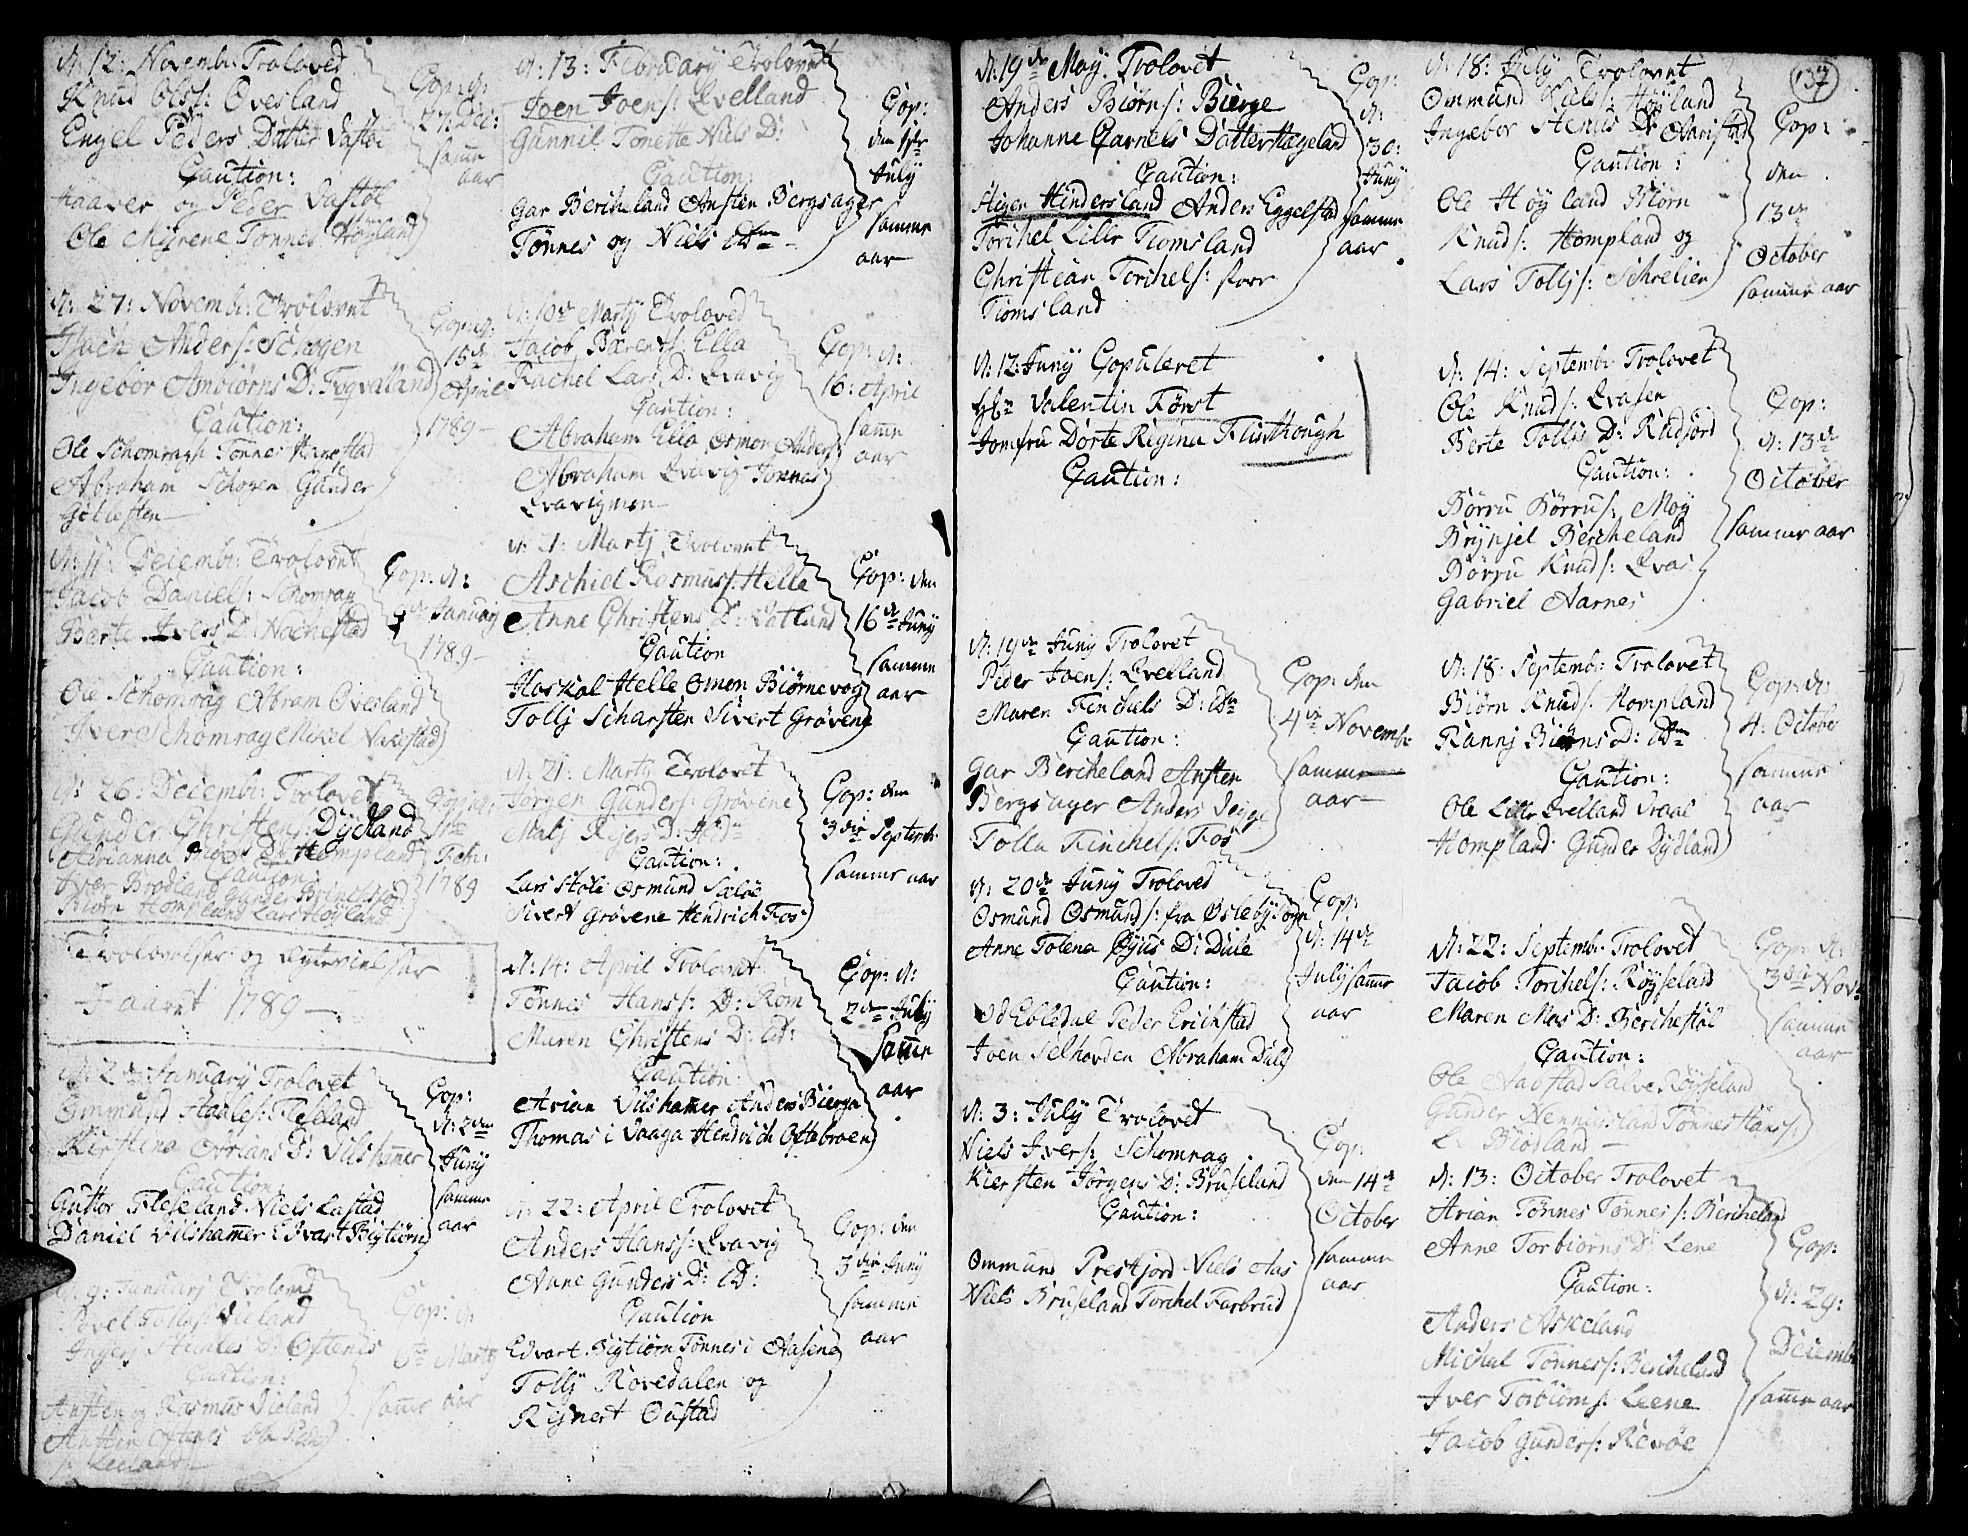 d. 12: Novemb: Troloved
Knud Ols: Øvesland
Engel Peders Datter Vastøl
Caution:
Haaver og Peder Vastøl
Ole Myrene Tønnes Høyland
Cop: d:
27: Dec:
samme
aar
d. 27: Novemb: Trolovet
Isach Anders: Schogen
Ingebor Ambiørns D: Fegvaland
Caution:
Ole Schomrag Tønnes Hanestad
Abraham Schogen Gunder
Gollesten
Cop: d:
15de
April
1789
d. 11: Decemb: Trolovet
Jacob Daniels: Schomrag
Berte Ivers D: Nochestad
Caution:
Ole Schomrag Abram Ovesland
Iver Schomrag Mikel
Cop: d:
January
1789
d. 26: Decemb: Trolovet
Gunder Christens: Dydland
Adrianna D: Hompland
Caution:
Iver Brødland Gunder
Biørn Hompland Lars Høyland
Febr:
1789
Trolovelser og
I aaret 1789
d. 2den January Trolovet
Ommund Aadels: Feseland
Kierstina Adrians D: Vilshamer
Caution:
Guttor Fleseland Niels Lastad
Daniel Vilshamer Edvart Bigtiørn
Cop:
d. 2den
Juny
samme
aar
d. 9: January Trolovet
Povel Tollis: Vieland
D: Oftenes
Caution:
Ansten og Rasmus Vieland
Cop: d:
6te Marty
samme aar
d: 13: February Trolovet
Joen Joens: Qvelland
Gunnil Tonette Niels D:
Caution:
Gar Bercheland Ansten Bergsager
Tønnes og Niels ibdm
Cop:
den 1ste
July
samme
aar
d. 10de Marty Trolovet
Jacob Bærents: Ella
Rachel Lars D: Qvavig
Caution:
Abraham Ella Osmon Anders:
Abraham Qvavig Tønnes
Qvavigmon
Cop: d:
16: April
samme
aar
d. 21: Marty Trolovet
Aschiel Rasmus: Helle
Anne Christens D: Vatland
Caution
Haskal Helle Omon Biørnevog
Tollj Scharsten Sivert Grøvene
Cop: den
16de Juny
samme
aar
d. 21: Marty Trolovet
Jørgen Gunders: Grøvene
Malj Rejers D:
Caution:
Lars Støle Osmund Sæløe
Sivert Grøvene Hendrich Fos
Cop: den
3die Septemb:
samme aar
d. 14: April Trolovet
Tønnes Hans: D: Rom
Maren Christens D: ibd:
Caution:
Arian Vilshamer Anders Bierga
Thomas i Vaaga Hendrich Oftebroen
Cop: d:
2den July
samme
aar
d. 22: April Trolovet
Anders Hans: Qvavig
Anne Gunders D: ibd:
Caution
Edvart Bigtiørn Tønnes i Aasene
Tollj Røvedalen og
Rejnert Oustad
Cop: den
3die Juny
samme
aar
d: 19de May Trolovet
Anders Biørns: Bierge
Johanne Garnels Datter Hægeland
Caution:
Stigen Hindersland Anders Eggelstad
Torchel Lille Tiomsland
Christian Torchels: store
Tiomsland
Cop:
d:
30:
Juny
samme
aar
d: 12: Juny Copuleret
Valentin Først
Jomfru Dorte Regina Flinthough
Caution:
d: 19de Juny Trolovet
Peder Joens: Qvelland
Maren Finchels D: ibdm
Caution:
Gar Bercheland Ansten
Bergsager Anders
Tolla Finchels: Fos
Cop: den
4de Novemb:
samme
aar
d: 20de Juny Trolovet
Osmund Osmunds: fra Oslebysogn
Anne Tolena D: Dale
Caution:
Od Ebledal Peder Erichstad
Joen Selhovden Abraham Dale
Cop:
d: 14de
July samme
aar
d. 3: July Trolovet
Niels Ivers: Schomrag
Kiersten Jørgens D: Bruseland
Caution:
Ommund Prestfjord Niels Aas
Niels Bruseland Torchel Farbrud
Cop:
den 14de
October
samme
aar
137
d. 18: July Trolovet
Ommund Niels: Høyland
Ingebor D: Aaristad
Caution:
Ole Høyland Biørn
Knuds: Hompland og
Lars Tollj s: Schreiier
Cop:
den
13de
October
samme aar
d: 14: Septemb: Trolovet
Ole Knuds: Qvasen
Berte Tollis D: Rudjord
Caution:
Børru Børrus: Moy
Brynjel Bercheland
Børru Knuds: Qvas
Gabriel Aarnes
Cop:
d: 13de
October
samme aar
d: 18: Septemb: Trolovet
Biørn Knuds: Hompland
Rannj Biørns D: ibdm
Caution:
Ole Lille Qvelland Vraal
Hompland Gunder Dydland
Cop: d:
4: October
samme
aar
d: 22: Septemb: Trolovet
Jacob Torchels: Røyseland
Maren Mos D: Berchestøl
Caution:
Ole Aadstad Salve Røyseland
Gunder Henningsland Tønnes Hans:
Brødland
Cop: d:
3die Nov:
samme
aar
d: 13: October Trolovet
Arian Tønnes Tønnes: Bercheland
Anne Torbiørns D: Lene
Caution:
Anders Askeland
Michal Tønnes: Bercheland
Iver Torbiørns: Leene
Jacob Gunders: Revøe
Cop:
d: 29:
Decemb:
samme aar